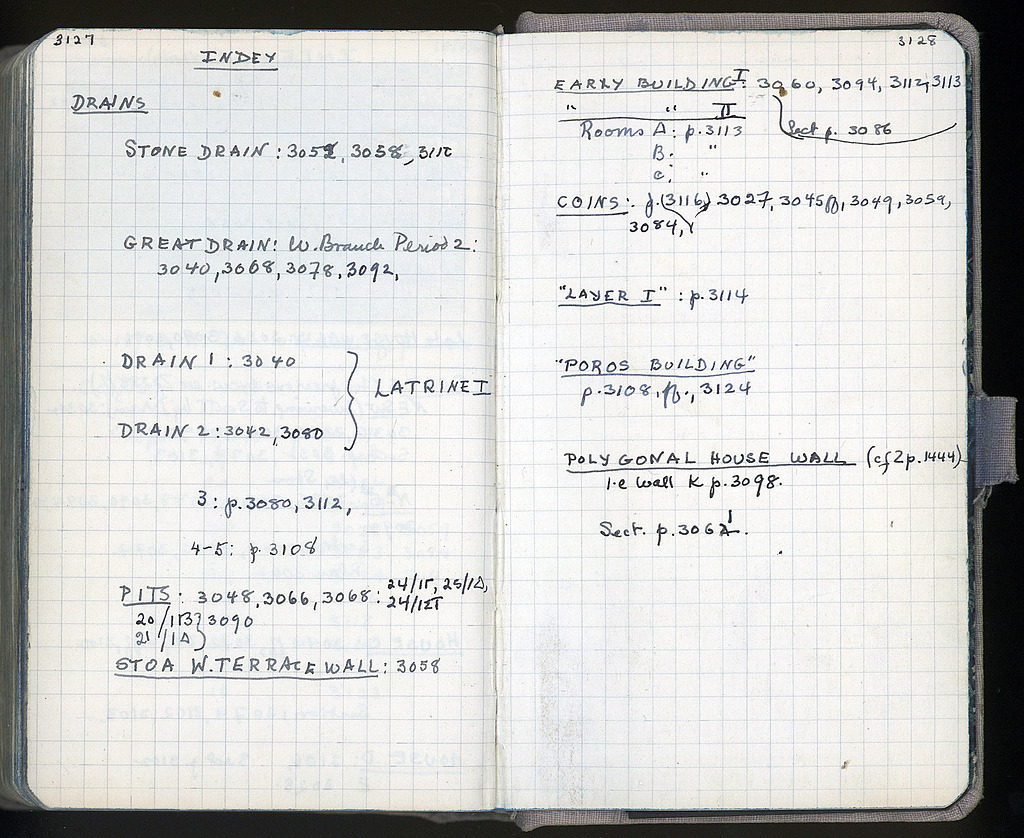 3127
INDEX
DRAINS
STONE DRAIN : 3052, 3058, 311
GREAT DRAIN: W. Branch Period 2:
3040, 3068, 3078, 3092,
DRAIN 1 : 3040
LATRINE I
DRAIN 2 : 3042, 3080
3: p.3080, 3112,
4-5: p. 3108
PITS : 3048, 3066, 3068 : 24/IΓ, 25/IΔ,
24/
20/IB } 3090
21/IΔ
STOA W. TERRACE WALL : 3058
3128
EARLY BUILDING I : 3060, 3094, 3112, 3113
" " II
Sect p. 3086
Rooms A : p. 3113
B : "
C : "
COINS : f. (3116) 3027, 3045ff, 3049, 3059,
3084,
"LAYER I" : p. 3114
"POROS BUILDING"
p. 3108, ff., 3124
POLYGONAL HOUSE WALL (cf 2 p. 1444)
i.e wall K p. 3098.
Sect. p. 3061.